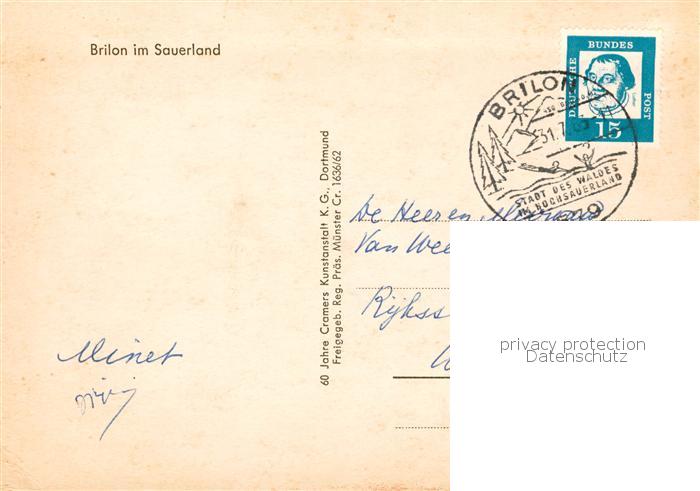 Brilon im Sauerland
DEUTSCHE BUNDES POST
15
BRILON
31.7.
STADT DES WALDES
IM HOCHSAUERLAND
60 Jahre Cramers Kunstanstalt K. G., Dortmund
Freigegeb. Reg. Präs. Münster Cr. 1636/62
De Heeren
Van Wee
Rijkss
Minet
privacy protection
Datenschutz